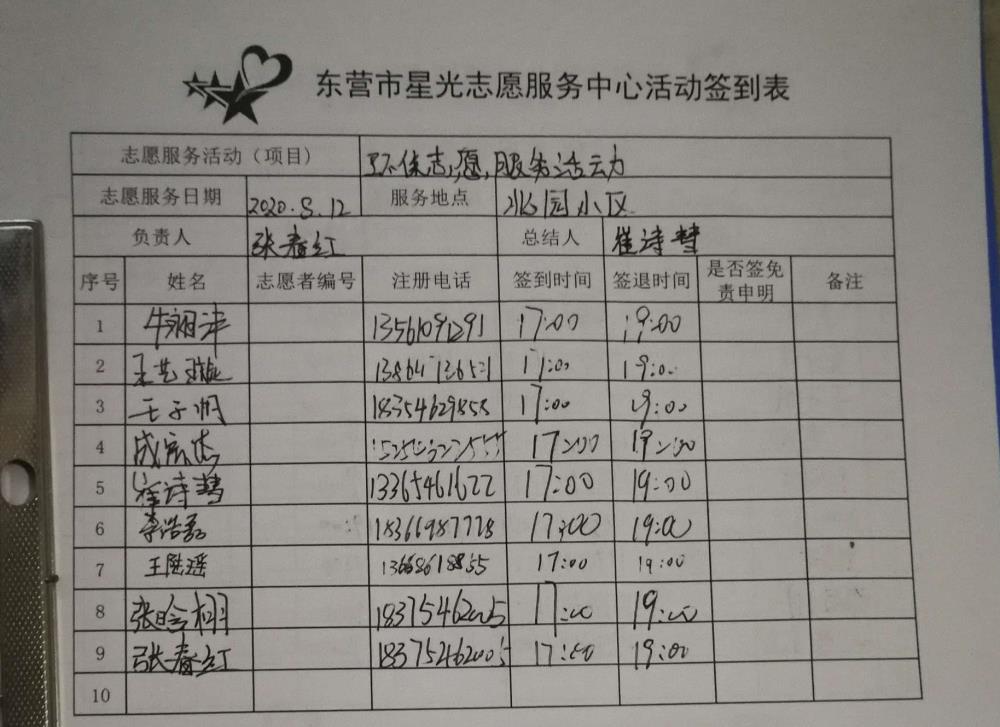 东营市星光志愿服务中心活动签到表
志愿服务活动（项目） 环保志愿服务活动
志愿服务日期 2020.8.12 服务地点 北园小区
负责人 张春红 总结人 崔诗慧
序号 姓名 志愿者编号 注册电话 签到时间 签退时间 是否签免责申明 备注
1 牛湘沣 13561091291 17:00 19:00
2 17:00 19:00
3 王子 18354629858 17:00 19:00
4 成宏杰 17:00 19:00
5 崔诗慧 13365461622 17:00 19:00
6 李浩 18366987728 17:00 19:00
7 王陆瑶 13668618855 17:00 19:00
8 张晗栩 18375462005 17:00 19:00
9 张春红 18375462005 17:00 19:00
10